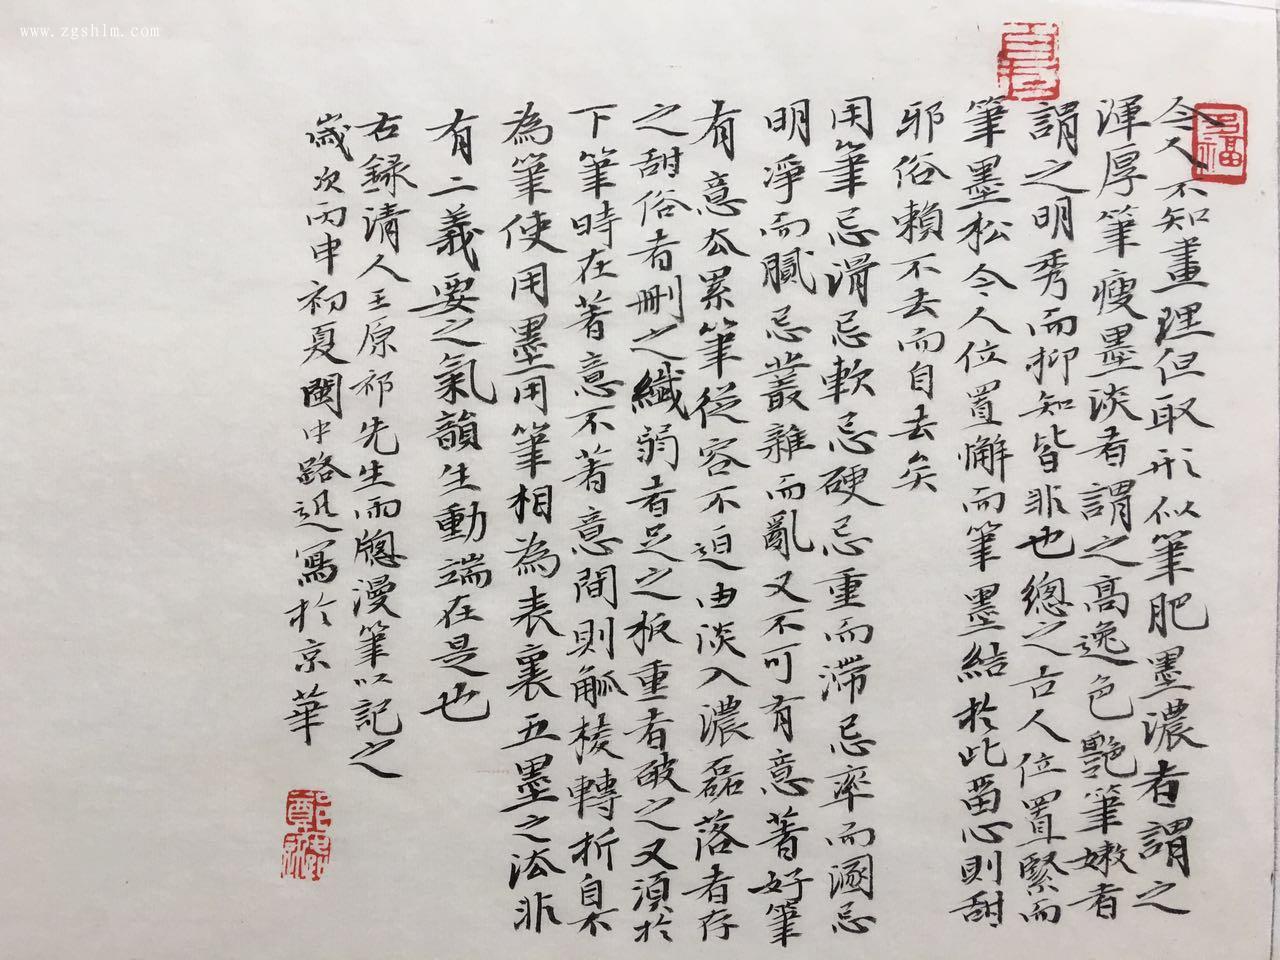 www.zgshlm.com
今人不知畫理但取形似筆肥墨濃者謂之
渾厚筆瘦墨淡者謂之高逸色艷筆嫩者
謂之明秀而抑知皆非也總之古人位置緊而
筆墨松今人位置懈而筆墨結於此留心則甜
邪俗賴不去而自去矣
用筆忌滑忌軟忌硬忌重而滯忌率而溷忌
明淨而膩忌叢雜而亂又不可有意著好筆
有意厺累筆從容不迫由淡入濃磊落者存
之甜俗者刪之纖弱者足之板重者破之又須於
下筆時在著意不著意間則觚棱轉折自不
為筆使用墨用筆相為表裏五墨之法非
有二義要之氣韻生動端在是也
右錄清人王原祁先生雨窗漫筆以記之
歲次丙申初夏閩中路迅寫於京華
福
鄭